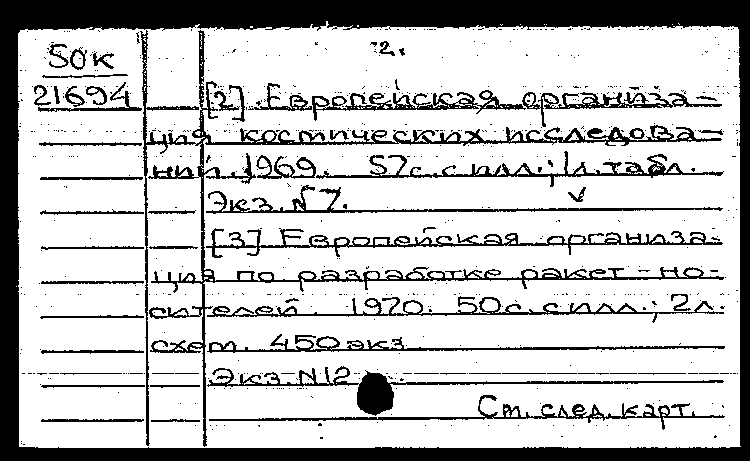 2.
50к
21694
[2]. Европейская организа-
ция космических исследова-
ний. 1969. 57с. с илл.; 1л. табл.
Экз. №7.
[3] Европейская организа-
ция по разработке ракет-но-
сителей. 1970. 50с. с илл.; 2л.
схем. 450 экз.
Экз. N12.
См. след. карт.